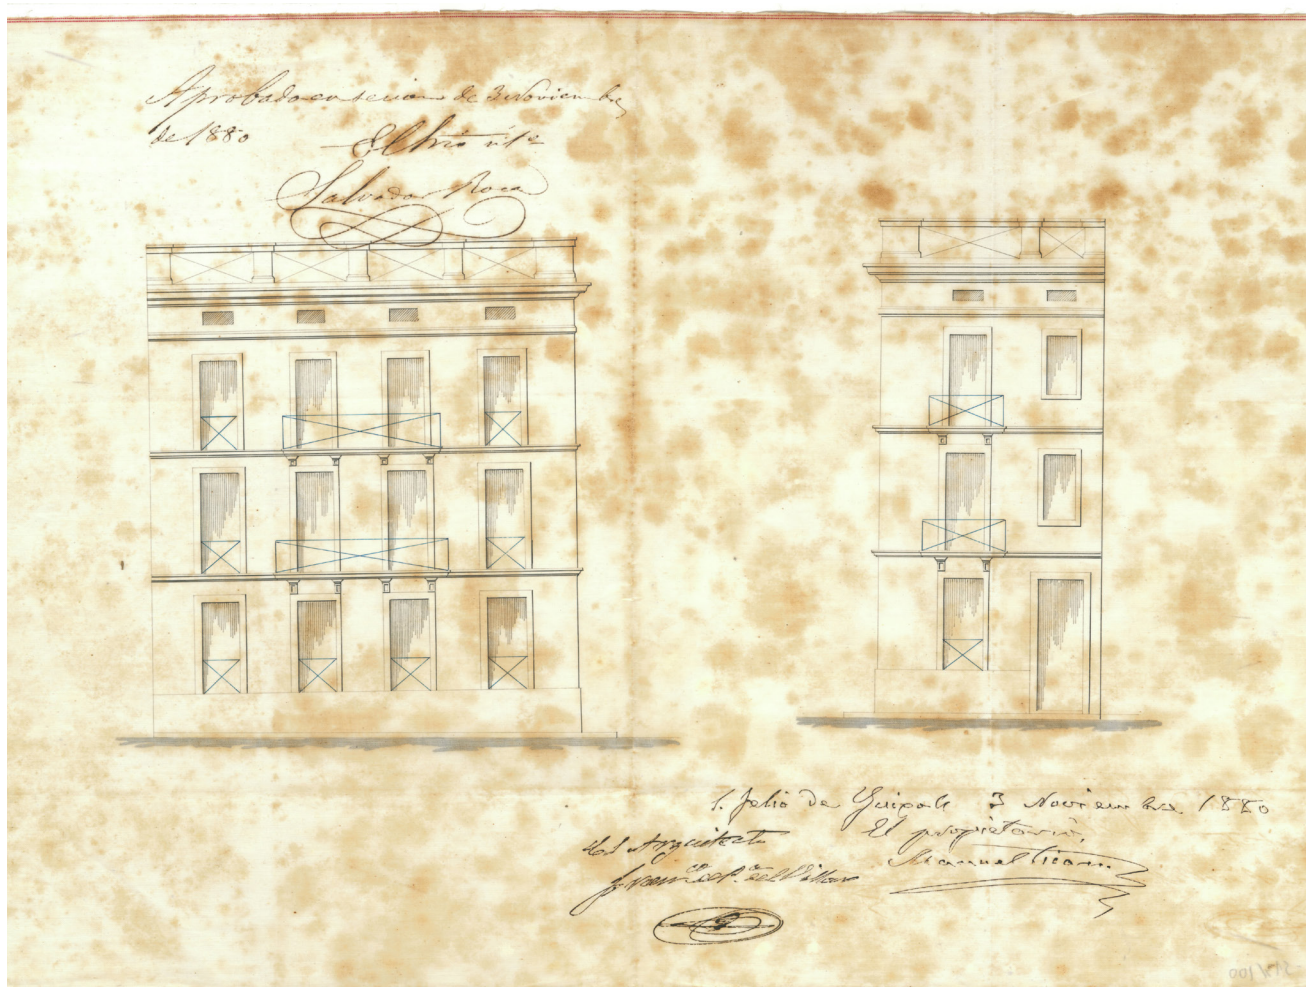 Aprobado en sesion de 3 Noviembre
de 1880
El Srio int.º
Salvador Roca
S. Felio de Guixols 3 Noviembre 1880
El Arquitecto
El propietario,
Franco de P. del Villar
Manuel
001